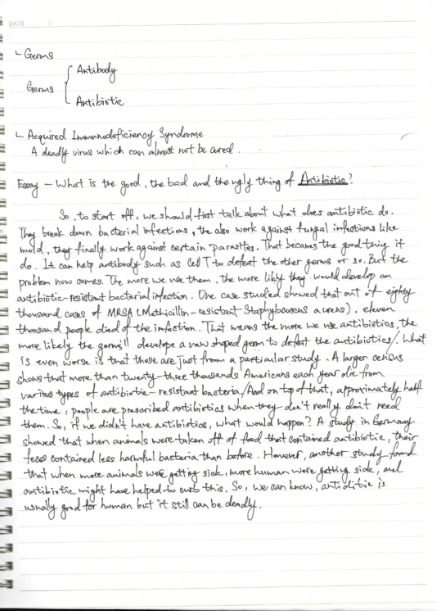 DATE /
└ Germs
Germs { Antibody
Antibiotic
└ Acquired Immunodeficiency Syndrome
A deadly virus which can almost not be cured.
Essay – What is the good, the bad and the ugly thing of Antibiotic?
So, to start off, we should fist talk about what does antibiotic do.
They break down bacterial infections, the also work against fungal infections like
mold, they finally work against certain parasites. That becams the good thing it
do. It can help antibody such as Cell T to defeat the other germs or so. But the
problem now comes. The more we use them, the more likly they would develop an
antibiotic-resistant bacterial infection. One case studied showed that out of eighty
thousand cases of MRSA (Methicillin-resistant Staphylococcus aureus), eleven
thousand people died of the infection. That means the more we use antibiotics, the
more likely the germs'll develop a new shaped germ to defeat the antibiotics/. What
is even worse is that those are just from a particular study. A larger census
shows that more than twenty-three thousands Americans each year die from
various types of antibiotic-resistant bacteria/ And on top of that, approximately half
the time, people are prescribed antibiotics when they don't really don't need
them. So, if we didn't have antibiotics, what would happen? A study in Germany
showed that when animals were taken off of food that contained antibiotic, their
feces contained less harmful bacteria than before. However, another study found
that when more animals were getting sick, more human were getting sick, and
antibiotic might have helped to curb this. So, we can know, antibiotic is
usually good for human but it still can be deadly.